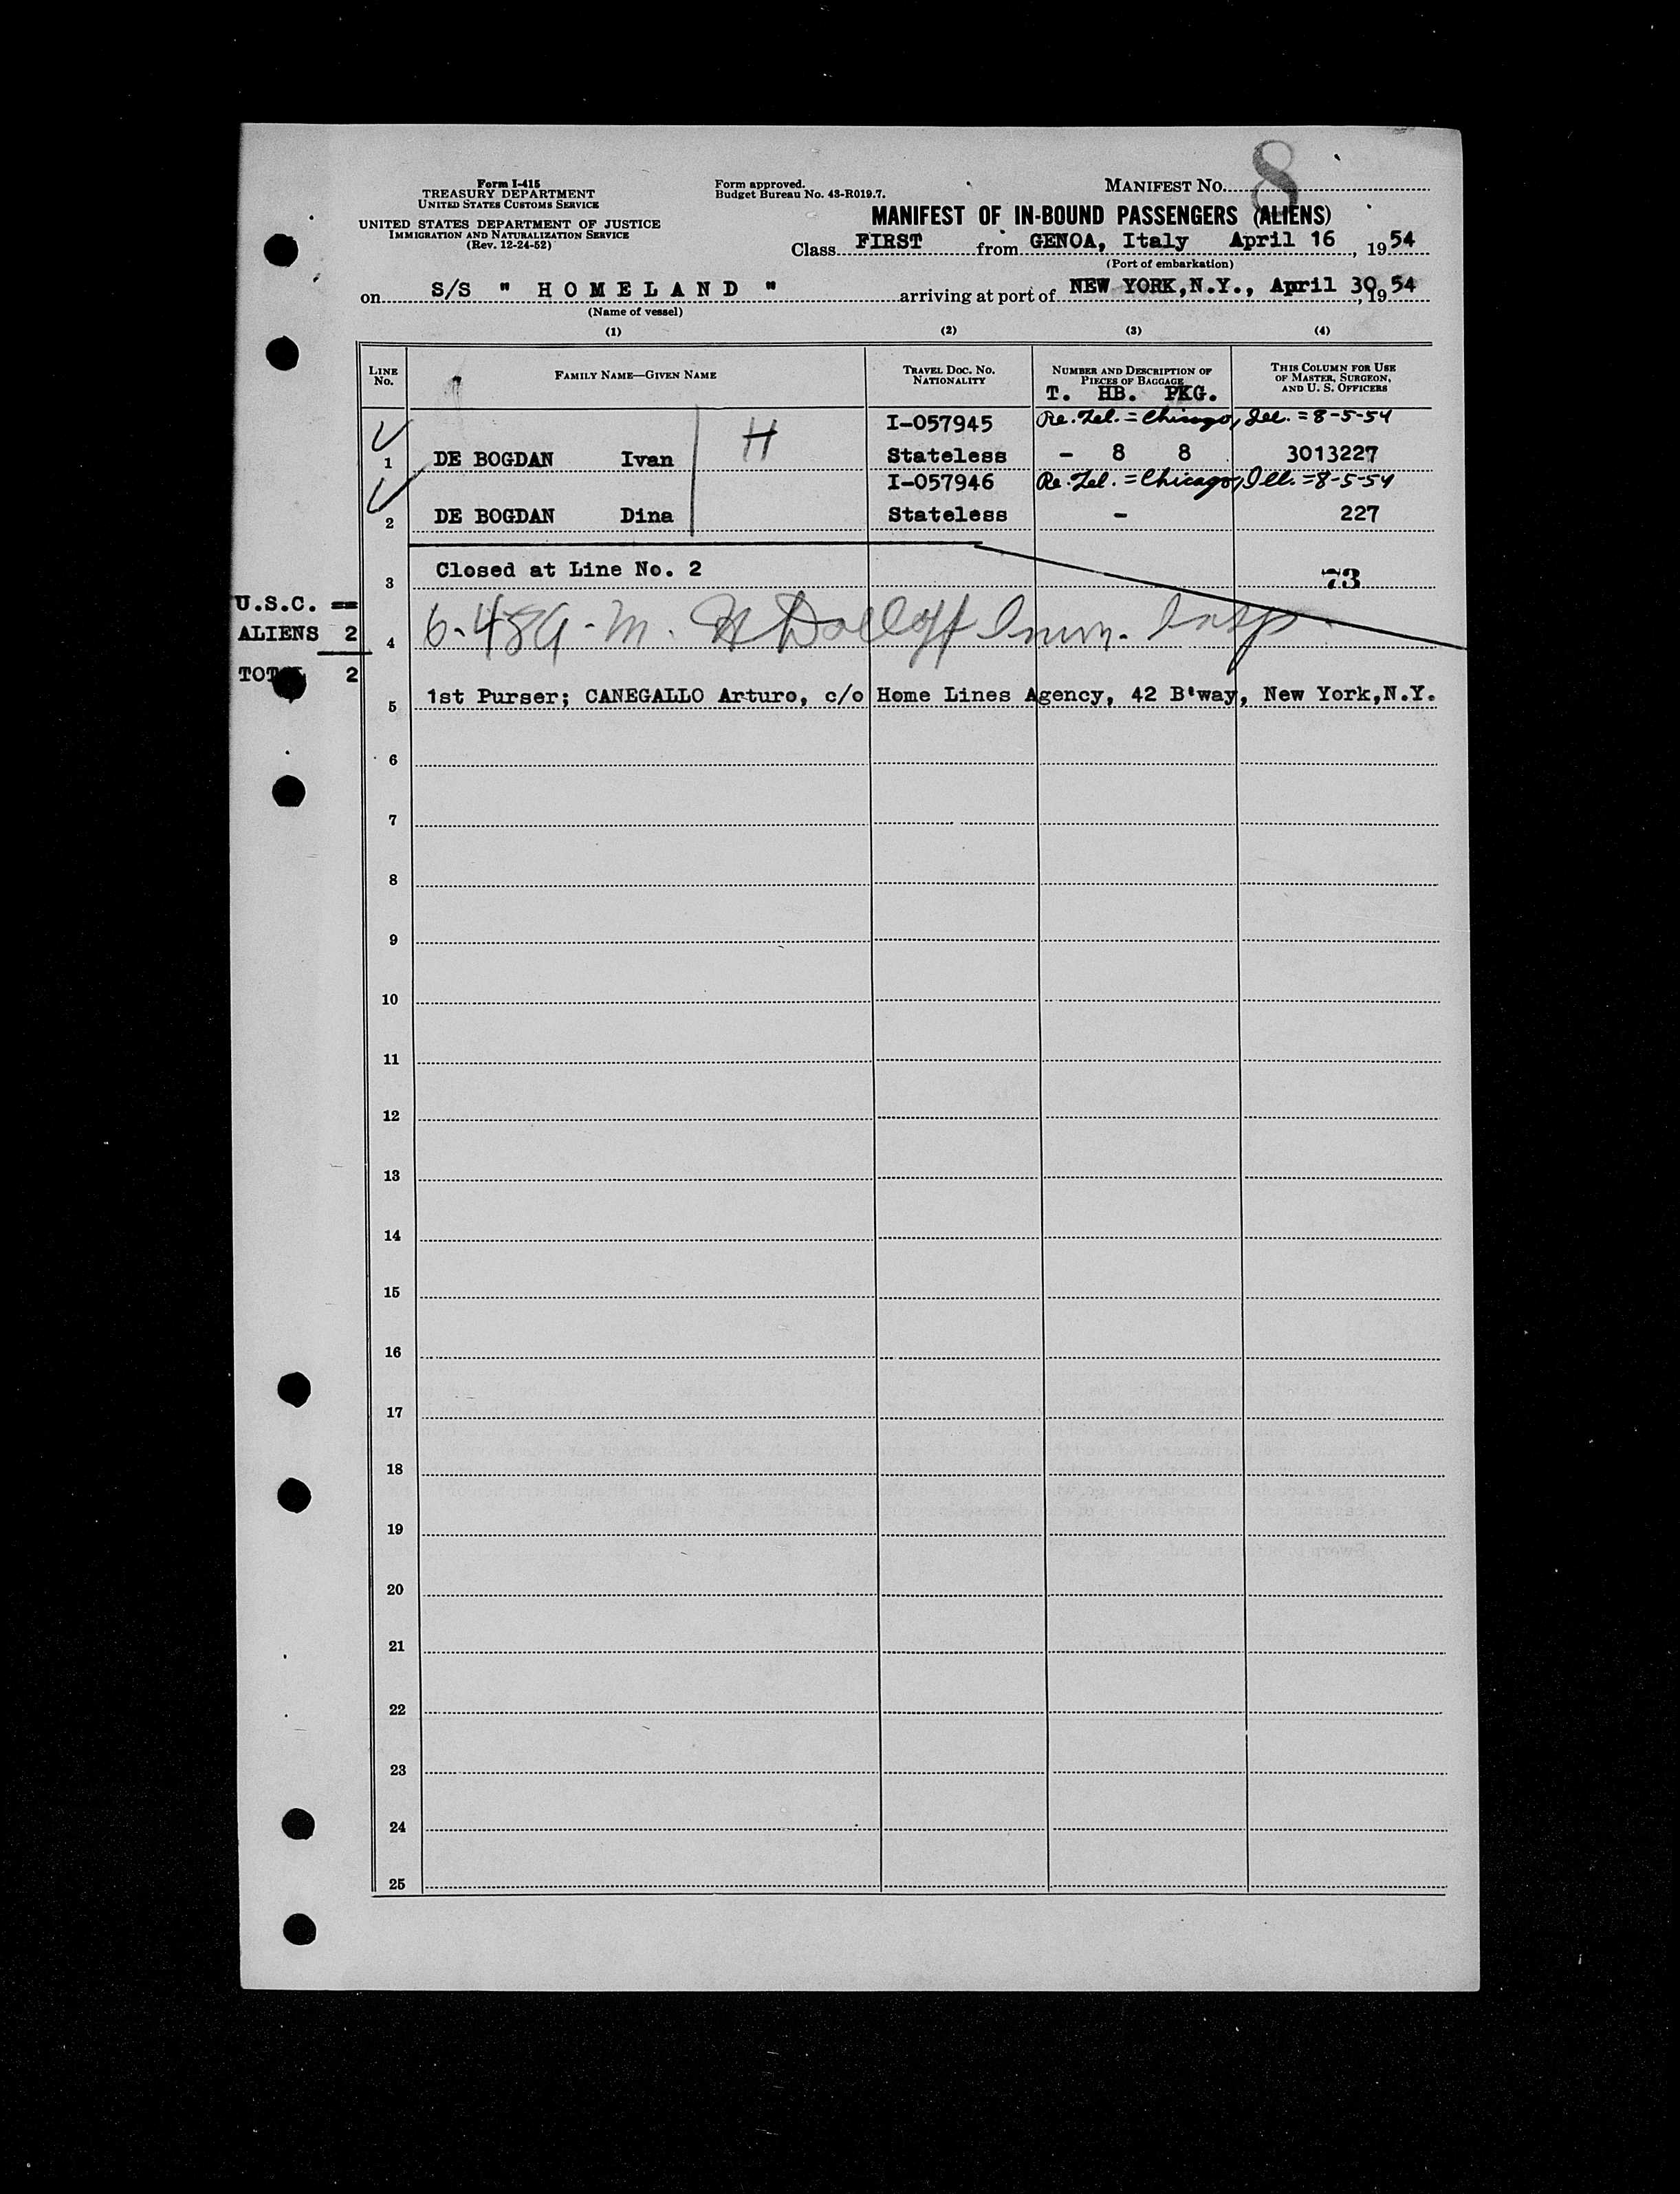 8
Form I-415
TREASURY DEPARTMENT
UNITED STATES CUSTOMS SERVICE
UNITED STATES DEPARTMENT OF JUSTICE
IMMIGRATION AND NATURALIZATION SERVICE
(Rev. 12-24-52)
Form approved.
Budget Bureau No. 43-R019.7.
MANIFEST NO.
MANIFEST OF IN-BOUND PASSENGERS (ALIENS)
Class FIRST from GENOA, Italy April 16, 1954
(Port of embarkation)
on S/S " H O M E L A N D " arriving at port of NEW YORK, N.Y., April 30, 1954
(Name of vessel)
(1) (2) (3) (4)
LINE No. FAMILY NAME—GIVEN NAME TRAVEL DOC. NO. NATIONALITY NUMBER AND DESCRIPTION OF PIECES OF BAGGAGE THIS COLUMN FOR USE OF MASTER, SURGEON, AND U. S. OFFICERS
T. HB. PKG.
I-057945 Re. Zel. = Chicago, Ill. = 8-5-54
1 DE BOGDAN Ivan H Stateless - 8 8 3013227
I-057946 Re. Zel. = Chicago, Ill. = 8-5-54
2 DE BOGDAN Dina Stateless - 227
3 Closed at Line No. 2 73
U.S.C. --
ALIENS 2
TOT 2
4 6-489-M. H Dolloff Imm. Insp.
5 1st Purser; CANEGALLO Arturo, c/o Home Lines Agency, 42 B'way, New York, N.Y.
6
7
8
9
10
11
12
13
14
15
16
17
18
19
20
21
22
23
24
25